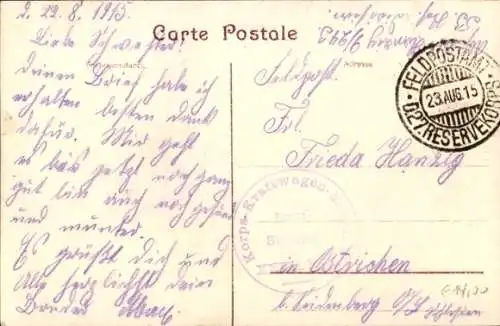 d. 22.8.1915
Carte Postale
Liebe Schwester!
Deinen Brief habe ich
erhalten besten Dank
dafür. Mir geht
es bis jetzt noch ganz
gut bin auch noch gesund
und munter.
Es grüßt Dich und
Alle herzlichst dein
Bruder Max.
Adresse
Feldpost.
Frl.
Frieda Hanzig
in Ostrichen
b. Seidenberg O/L
Schlesien
FELDPOSTAMT
23.AUG.15
D.27.RESERVEKORPS
Korps-Kraftwagen-